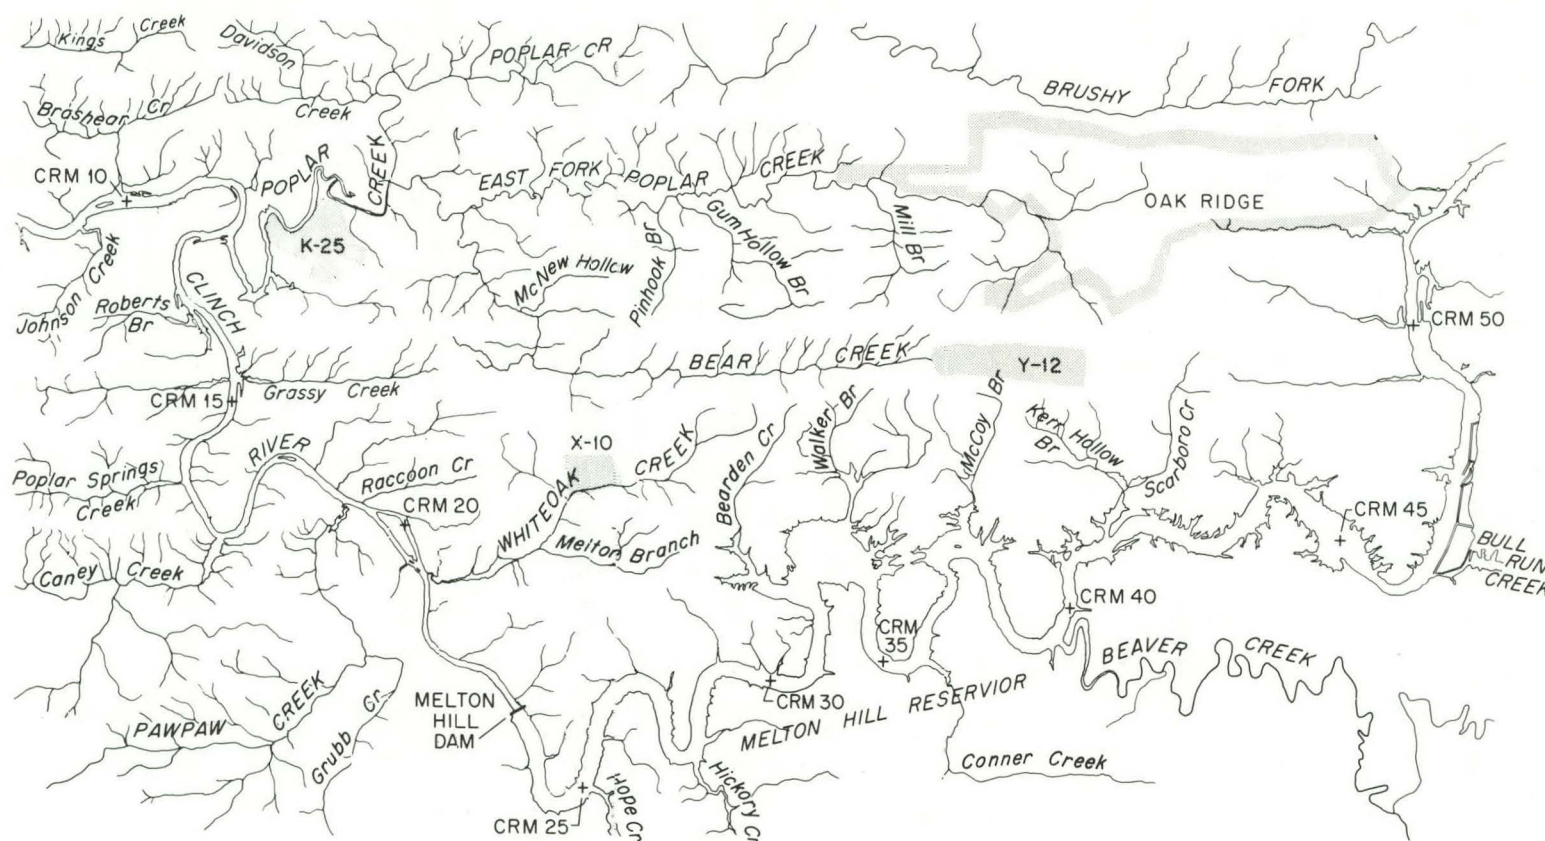 Kings Creek
Davidson
Creek
POPLAR CR
BRUSHY FORK
Brashear Cr
CRM 10
POPLAR
CREEK
EAST FORK POPLAR CREEK
OAK RIDGE
K-25
Johnson Creek
Roberts
Br
CLINCH
McNew Hollow
Pinhook Br
Gum Hollow Br
Mill Br
CRM 50
BEAR CREEK
Y-12
Grassy Creek
CRM 15
RIVER
X-10
Poplar Springs
Creek
Raccoon Cr
CRM 20
WHITEOAK CREEK
Melton Branch
Bearden Cr
Walker Br
McCoy Br
Kerr Hollow
Br
Scarboro Cr
CRM 45
BULL
RUN
CREEK
Caney Creek
CRM 40
CRM
35
BEAVER CREEK
PAWPAW CREEK
Grubb Cr
MELTON
HILL
DAM
CRM 30
MELTON HILL RESERVIOR
Conner Creek
CRM 25
Hope Cr
Hickory Cr